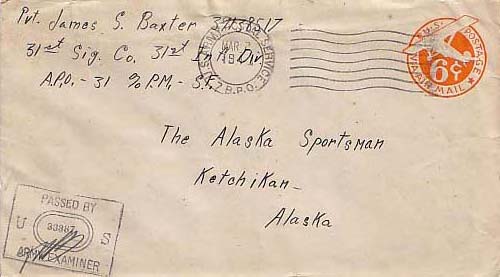 Pvt. James S. Baxter
31st Sig. Co. 31st Inf. Div.
A.P.O. - 31 % P.M. - S.F.
U.S. ARMY POSTAL SERVICE
MAR
A.P.O.
U.S. POSTAGE
6¢
VIA AIR MAIL
The Alaska Sportsman
Ketchikan -
Alaska
PASSED BY
U S
ARMY EXAMINER